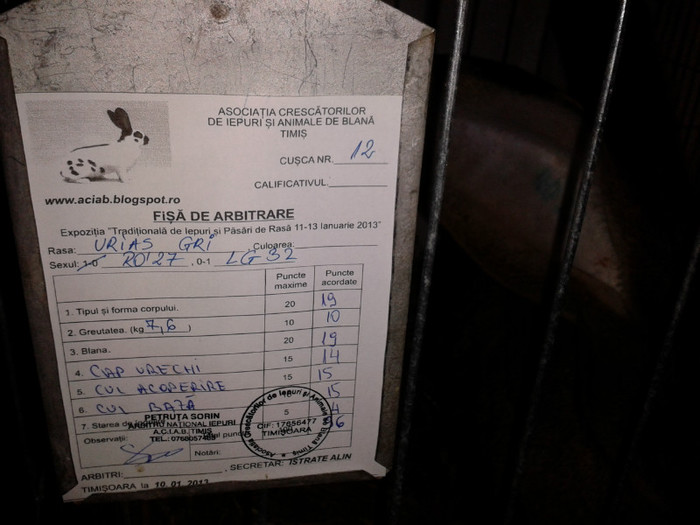 ASOCIAȚIA CRESCĂTORILOR
DE IEPURI ȘI ANIMALE DE BLANĂ
TIMIȘ
CUȘCA NR. 12
CALIFICATIVUL.
www.aciab.blogspot.ro
FIȘĂ DE ARBITRARE
Expoziția "Tradițională de Iepuri și Păsări de Rasă 11-13 Ianuarie 2013"
Rasa: URIAS GRI Culoarea:
Sexul: 1-0 RO'27 , 0-1 LG 32
Puncte maxime Puncte acordate
1. Tipul și forma corpului. 20 19
2. Greutatea. (kg 7,6 ) 10 10
3. Blana. 20 19
4. CAP URECHI 15 14
5. CUL ACOPERIRE 15 15
6. CUL BAZĂ 15
7. Starea de 5 4
96
PETRUȚA SORIN
ARBITRU NATIONAL IEPURI
A.C.I.A.B. TIMIȘ
TEL.: 0766057468
Observații:
Notări:
Asociația Crescătorilor de Iepuri și Animale de Blană Timiș
CIF: 17656477
TIMIȘOARA
ARBITRI: , SECRETAR: ISTRATE ALIN
TIMIȘOARA la 10.01.2013